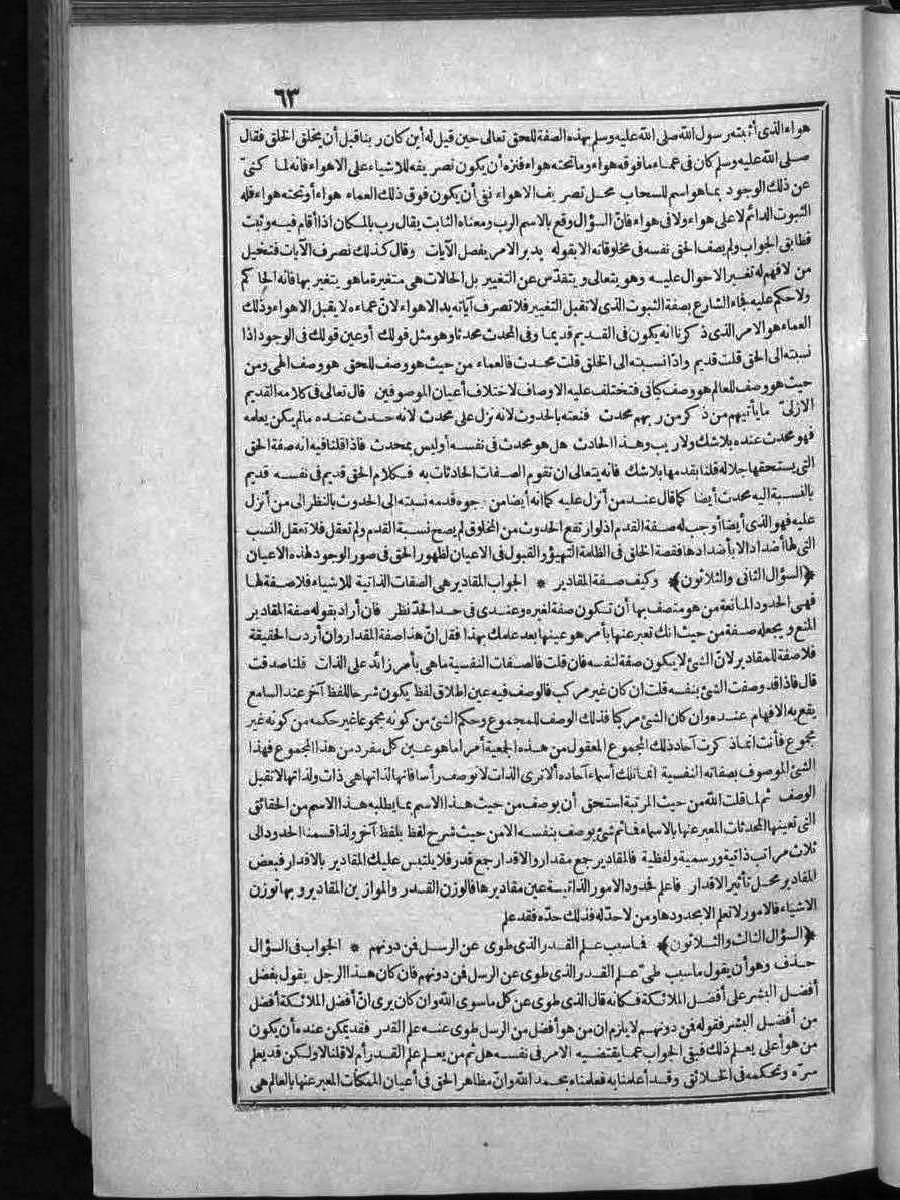 ٦٣
هواء الذى أثبته رسول الله صلى الله عليه وسلم بهذه الصفة للحق تعالى حين قيل له أين كان ربنا قبل أن يخلق الخلق فقال
صلى الله عليه وسلم كان فى عماء ما فوقه هواء وما تحته هواء فنزه أن يكون تصريفه للاشياء على الاهواء فانه لما كنى
عن ذلك الوجود بما هو اسم للسحاب محل تصريف الاهواء نفى أن يكون فوق ذلك العماء هواء أو تحته هواء فله
الثبوت الدائم لا على هواء ولا فى هواء فان السؤال وقع بالاسم الرب ومعناه الثابت يقال رب بالمكان اذا أقام فيه وثبت
فطابق الجواب ولم يصف الحق نفسه فى مخلوقاته الا بقوله يدبر الامر يفصل الآيات وقال كذلك نصرف الآيات فتخيل
من لا فهم له تغير الاحوال عليه وهو يتعالى ويتقدس عن التغيير بل الحالات هى متغيرة ما هو يتغير بها فانه الحاكم
ولا حكم عليه فجاء الشارع بصفة الثبوت الذى لا تقبل التغيير فلا تصرف آياته يد الاهواء لان عماءه لا يقبل الاهواء وذلك
العماء هو الامر الذى ذكرنا انه يكون فى القديم قديما وفى المحدث محدثا وهو مثل قولك أو عين قولك فى الوجود اذا
نسبته الى الحق قلت قديم واذا نسبته الى الخلق قلت محدث فالعماء من حيث هو وصف للحق هو وصف الهى ومن
حيث هو وصف للعالم هو وصف كيانى فتختلف عليه الاوصاف لاختلاف أعيان الموصوفين قال تعالى فى كلامه القديم
الازلى ما يأتيهم من ذكر من ربهم محدث فنعته بالحدوث لانه نزل على محدث لانه حدث عنده مالم يكن يعلمه
فهو محدث عنده بلا شك ولا ريب وهذا الحادث هل هو محدث فى نفسه أو ليس بمحدث فاذا قلنا فيه انه صفة الحق
التى يستحقها جلاله قلنا بقدمها بلا شك فانه يتعالى ان تقوم الصفات الحادثات به فكلام الحق قديم فى نفسه قديم
بالنسبة اليه محدث أيضا كما قال عند من أنزل عليه كما انه أيضا من وجوه قدمه نسبته الى الحدوث بالنظر الى من أنزل
عليه فهو الذى أيضا أوجب له صفة القدم اذ لو ارتفع الحدوث من المخلوق لم يصح نسبة القدم ولم تعقل فلا تعقل النسب
التى لها أضداد الا بأضدادها فقصة الخلق فى الظلمة التهيؤ والقبول فى الاعيان لظهور الحق فى صور الوجود لهذه الاعيان
﴿السؤال الثانى والثلاثون﴾ وكيف صفة المقادير * الجواب المقادير هى الصفات الذاتية للاشياء فلا صفة لها
فهى الحدود المانعة من هو متصف بها أن تكون صفة لغيره وعندى فى حد الحد نظر فان أراد بقوله صفة المقادير
المنع ويجعله صفة من حيث انك تعبر عنها بأمر هو عينها بعد علمك بهذا فقل ان هذا صفة المقدار وان أردت الحقيقة
فلا صفة للمقادير لان الشئ لا يكون صفة لنفسه فان قلت فالصفات النفسية ما هى بأمر زائد على الذات قلنا صدقت
قال فاذا قد وصفت الشئ بنفسه قلت ان كان غير مركب فالوصف فيه عين اطلاق لفظ يكون شرحا للفظ آخر عند السامع
يقع به الافهام عنده وان كان الشئ مركبا فذلك الوصف للمجموع وحكم الشئ من كونه مجموعا غير حكمه من كونه غير
مجموع فأنت انما ذكرت آحاد ذلك المجموع المعقول من هذه الجمعية أمرا ما هو عين كل مفرد من هذا المجموع فهذا
الشئ الموصوف بصفاته النفسية انما تلك أسماء آحاده ألا ترى الذات لا توصف رأسا فانها لذاتها هى ذات ولذاتها لا تقبل
الوصف ثم لما قلت الله من حيث المرتبة استحق أن يوصف من حيث هذا الاسم بما يطلبه هذا الاسم من الحقائق
التى تعينها المحدثات المعبر عنها بالاسماء فما ثم شئ يوصف بنفسه الا من حيث شرح لفظ بلفظ آخر ولذا قسمنا الحدود الى
ثلاث مراتب ذاتية ورسمية ولفظية فالمقادير جمع مقدار والاقدار جمع قدر فلا يلتبس عليك المقادير بالاقدار فبعض
المقادير محل تأثير الاقدار فاعلم فحدود الامور الذاتية عين مقاديرها فالوزن القدر والموازين المقادير وبها توزن
الاشياء فالامور لا تعلم الا بحدودها ومن لا حد له فذلك حده فقد علم
﴿السؤال الثالث والثلاثون﴾ فما سبب علم القدر الذى طوى عن الرسل فمن دونهم * الجواب فى السؤال
حذف وهو أن يقول ما سبب طى علم القدر الذى طوى عن الرسل فمن دونهم فان كان هذا الرجل يقول بفضل
أفضل البشر على أفضل الملائكة فكانه قال الذى طوى عن كل ما سوى الله وان كان يرى ان أفضل الملائكة أفضل
من أفضل البشر فقوله فمن دونهم لا يلزم ان من هو أفضل من الرسل طوى عنه علم القدر فقد يمكن عنده أن يكون
من هو أعلى يعلم ذلك فبقى الجواب عما يقتضيه الامر فى نفسه هل ثم من يعلم علم القدر أم لا قلنا لا ولكن قد يعلم
سره وتحكمه فى الخلائق وقد أعلمنا به فعلمناه بحمد الله وان مظاهر الحق فى أعيان الممكنات المعبر عنها بالعالم هى